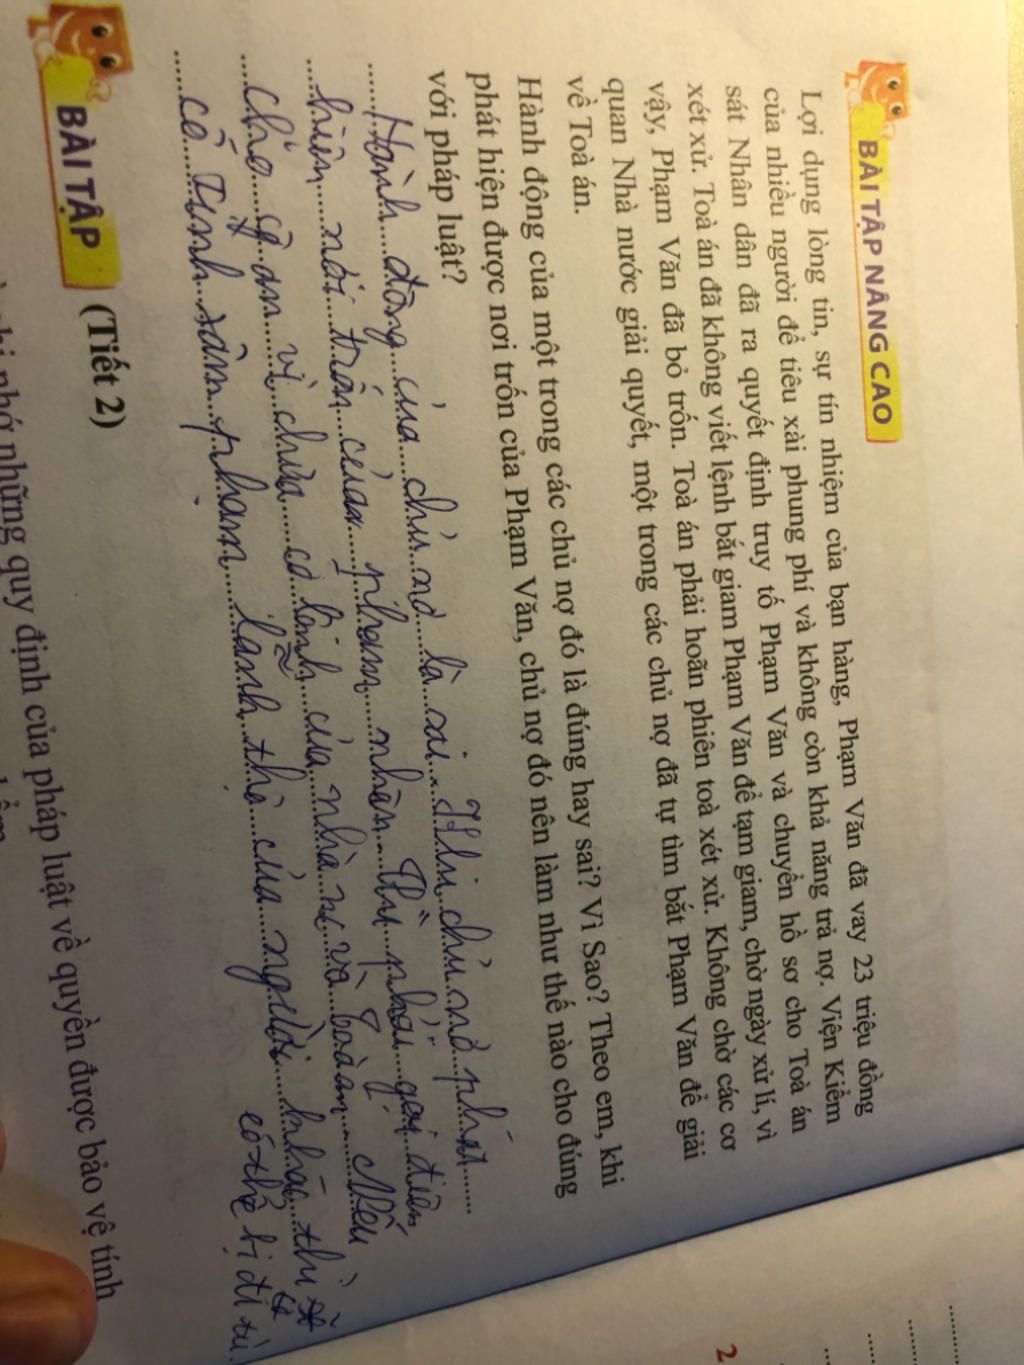 BÀI TẬP NÂNG CAO
Lợi dụng lòng tin, sự tín nhiệm của bạn hàng, Phạm Văn đã vay 23 triệu đồng
của nhiều người để tiêu xài phung phí và không còn khả năng trả nợ. Viện Kiểm
sát Nhân dân đã ra quyết định truy tố Phạm Văn và chuyển hồ sơ cho Toà án
xét xử. Toà án đã không viết lệnh bắt giam Phạm Văn để tạm giam, chờ ngày xử lí, vì
vậy, Phạm Văn đã bỏ trốn. Toà án phải hoãn phiên toà xét xử. Không chờ các cơ
quan Nhà nước giải quyết, một trong các chủ nợ đã tự tìm bắt Phạm Văn để giải
về Toà án.
Hành động của một trong các chủ nợ đó là đúng hay sai? Vì Sao? Theo em, khi
phát hiện được nơi trốn của Phạm Văn, chủ nợ đó nên làm như thế nào cho đúng
với pháp luật?
Hành động của chủ nợ là sai. Khi chủ nợ phát
hiện nơi trốn của phạm nhân thì phải gọi điện
cho cô an vì chưa có lệnh của nhà nc và toà an. Nếu
cố tình xâm phạm thân thể của người khác thì
có thể bị đi tù.
BÀI TẬP (Tiết 2)
ghi nhớ những quy định của pháp luật về quyền được bảo vệ tính
2